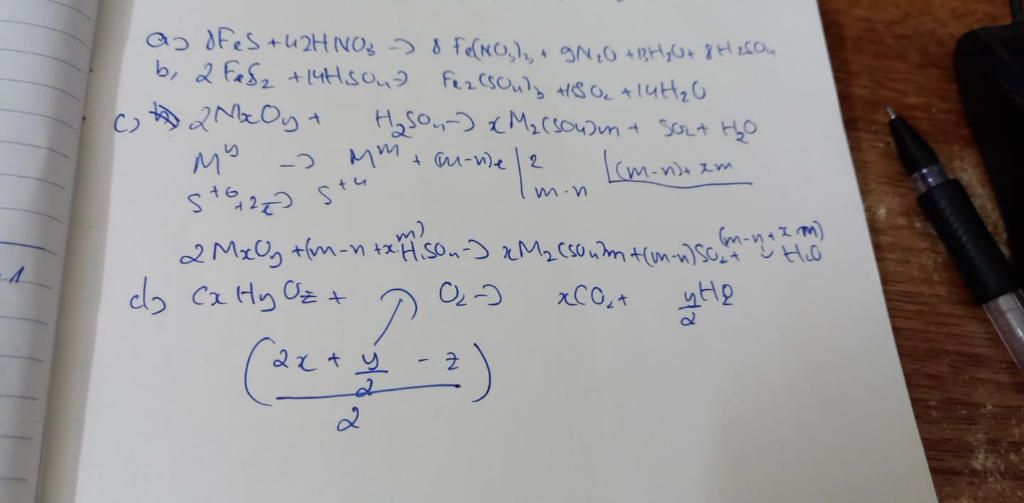 a) 8FeS + 42HNO3 -> 8 Fe(NO3)3 + 9N2O + 13H2O + 8H2SO4
b, 2 FeS2 + 14HSO4 -> Fe2(SO4)3 + 15SO2 + 14H2O
c) 2MxOy + H2SO4 -> xM2(SO4)m + SO2 + H2O
M^y -> M^m + (m-n)e | 2 (m-n)+xm
S^+6 +2e -> S^+4 | m-n
2MxOy + (m-n+xm) H2SO4 -> xM2(SO4)m + (m-n)SO2 + (m-n+xm) H2O
d) CxHyOz + O2 -> xCO2 + y/2 H2O
(2x + y/2 - z)
2
1